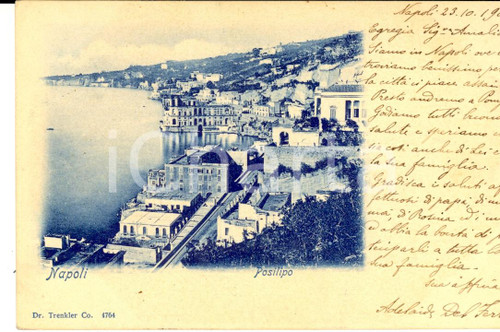 Napoli 23.10.19
Egregia Sig.na Amalia
Siamo in Napoli ove
troviamo benissimo per
la città ci piace assai
Presto andremo a
Godiamo tutti
salute e speriamo
così anche di Lei
la sua famiglia.
Gradisca i saluti
fettuosi di papà di
mà di Rosina di
e abbia la bontà di
teciparli a tutta la
sua famiglia -
sua affma
Adelaide Del
Napoli
Posilipo
Dr. Trenkler Co. 4764